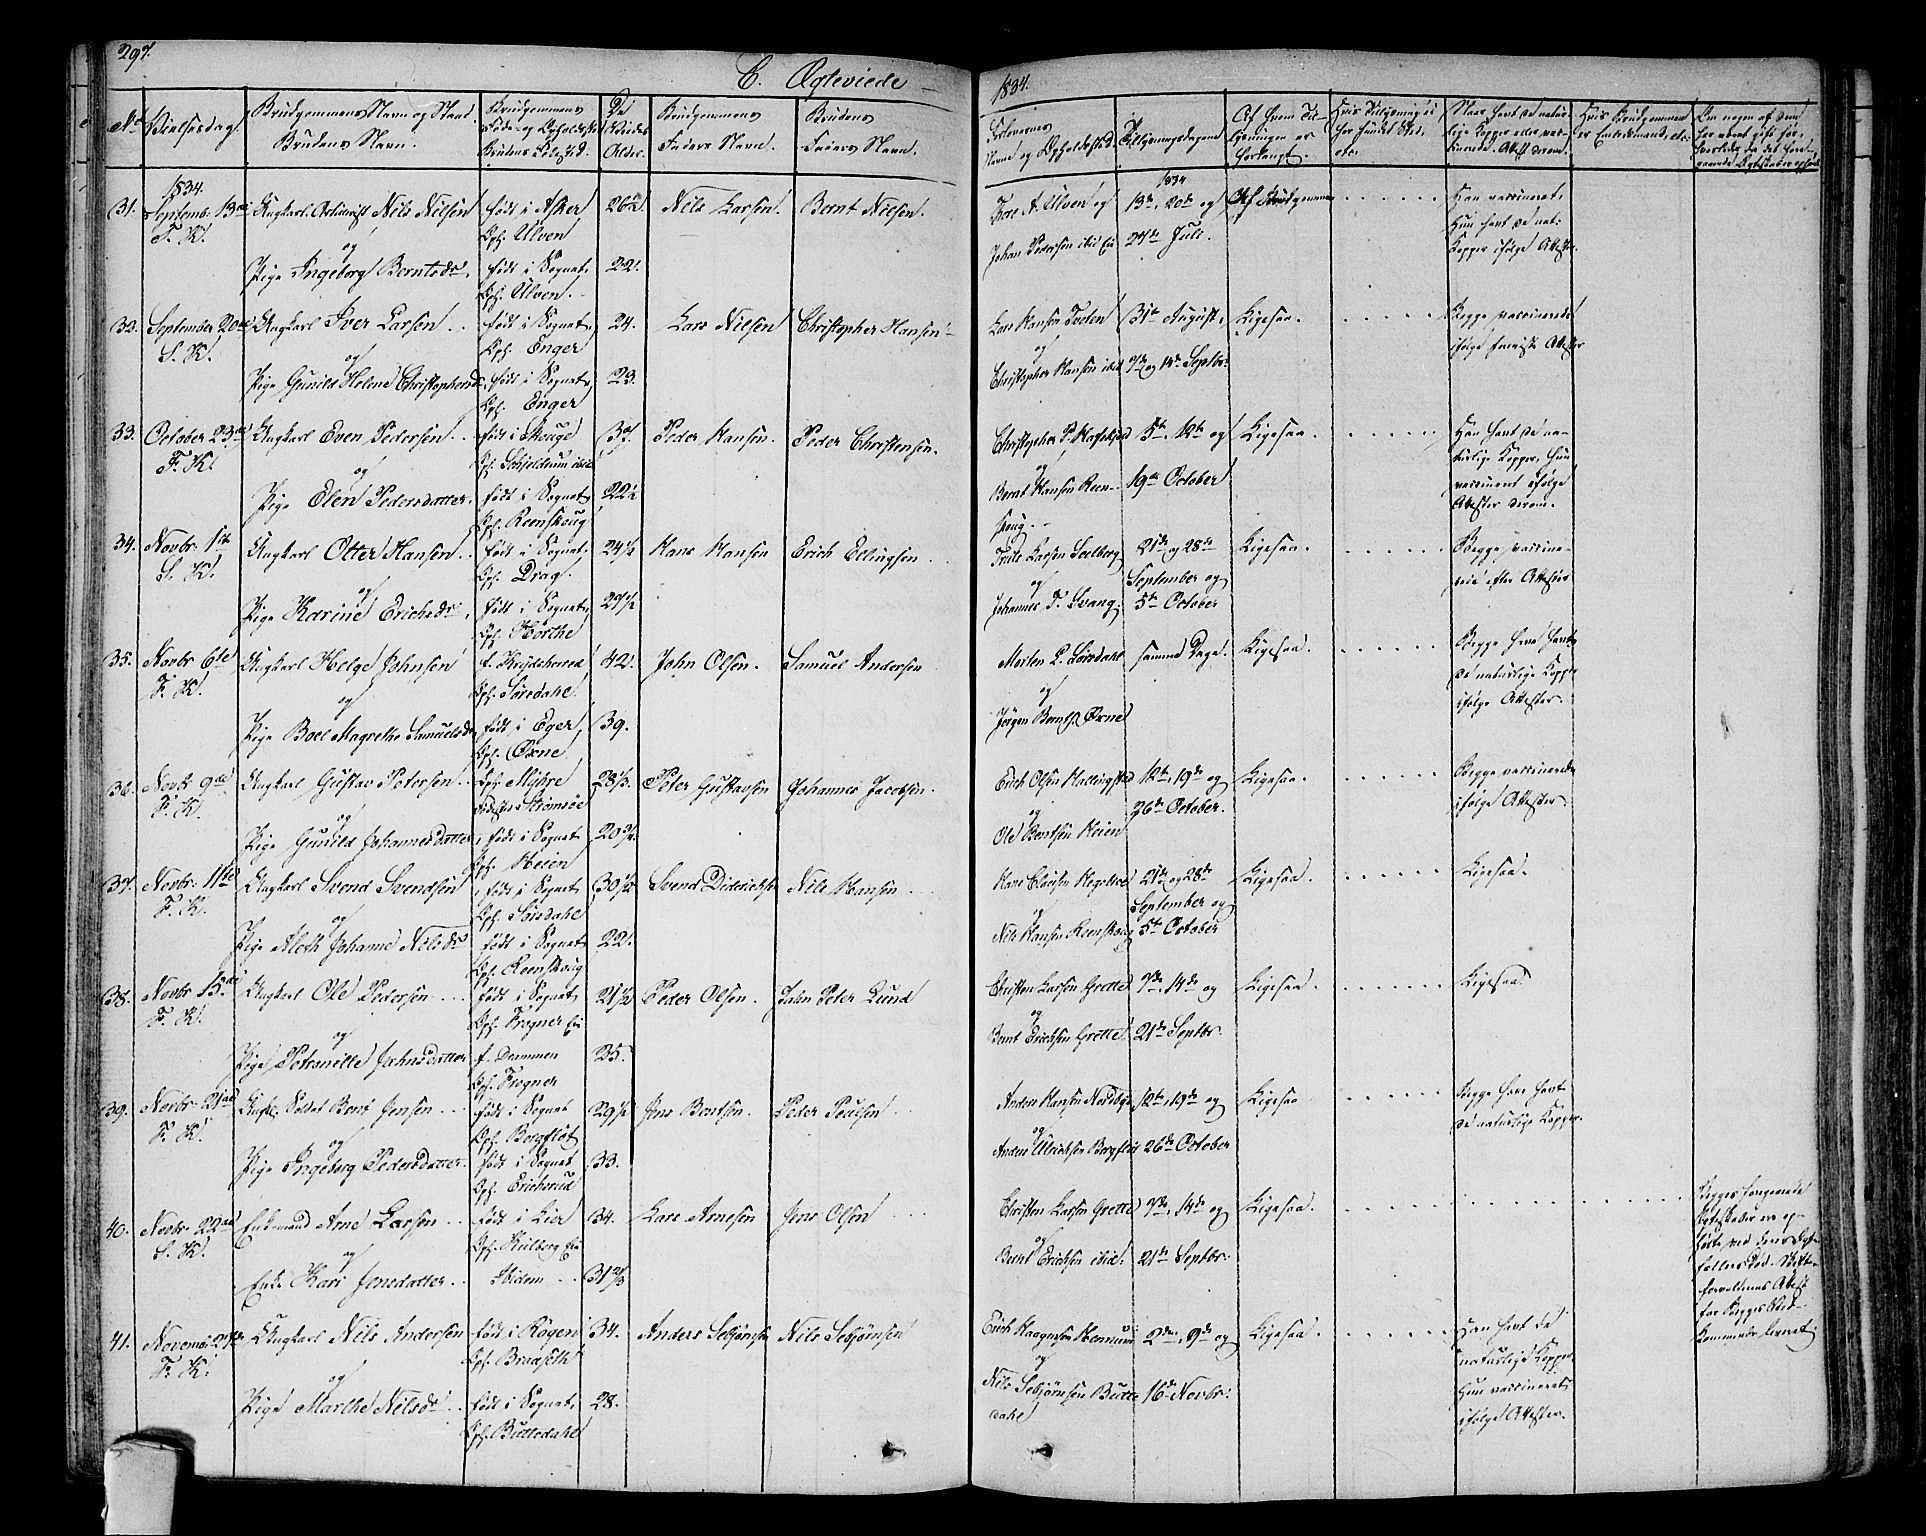 297.
C. Ægteviede
1834.
No
Vielsesdag.
Brudgommens Navn og Stand
Brudens Navn.
Brudgommens
Føde- og Opholdssted
Brudens Ditto
De
Viedes
Alder.
Brudgommens
Faders Navn.
Brudens
Faders Navn.
Forlovernes
Navne og Opholdssted.
Tillysningsdagene
1834.
31. Septemb. 13de
F. K.
Ungkarl Nils Nilsen
og
Pige Ingeborg Berntsdr.
født i Asker
Oph. Ulven
født i Sognet,
Oph. Ulven.
26½
22.
Nils Larsen.
Bernt Nielsen.
Tore A. Ulven og
Johan Pedersen ibid
1834
13de, 20de og
27de Juli.
Af Brudgommen
Han vaccineret,
Hun havt de nat:
Kopper ifølge Attester
32. September 20de
S. K.
Ungkarl Iver Larsen
og
Pige Gunild Helene Christophersdr
født i Sognet,
Oph. Enger
født i Sognet,
Oph. Enger
24.
23.
Lars Nielsen
Christopher Hansen
Lars Hansen Tveten
og
Christopher Hansen ibid
31te August,
7de og 14de Septbr.
Ligesaa.
Begge vaccinerede
ifølge Attester
33. October 23de
F. K.
Ungkarl Even Pedersen
og
Pige Elen Pedersdatter.
født i Skouge
født i Sognet,
Oph. Reenskoug
37.
22½
Peder Hansen.
Peder Christensen.
Christopher P.
og
Bernt Hansen Reen-
skoug.
5te, 12te og
19de October
Ligesaa.
Han havt de na-
turlige Kopper, Hun
vaccineret ifølge
Attester derom.
34. Novbr 1ste
S. K.
Ungkarl Otter Hansen
og
Pige Karine Erichsdr.
født i Sognet,
Oph. Drag.
født i Sognet,
Oph. Hørthe
24½
27½
Hans Hansen
Erich Ellingsen
Truls Larsen Solberg
og
Johannes T. Svang.
21de og 28de
September og
5te October
Ligesaa.
Begge vaccine-
rede efter Attester
35. Novbr 6te
F. K.
Ungkarl Helge Johnsen
og
Pige Boel Magrethe Samuelsdr
f. Krydsherred
Oph. Sørsdahl.
født i Eger,
Oph. Oxne
42.
39.
John Olsen.
Samuel Andersen
Morten L. Sørsdahl
og
Jørgen Berntsen Oxne
samme Dage.
Ligesaa.
Begge have havt
de naturlige Kopper
ifølge Attester.
36. Novbr 9de
F. K.
Ungkarl Gustav Petersen
og
Pige Gunild Johannesdatter,
Oph. Myhre
Strømsøe
født i Sognet
Oph. Heien
28⅓
20¾
Peter Gustavsen
Johannes Jacobsen.
Erich Olsen Hallingstad
og
Ole Berntsen Heien
12te, 19de og
26de October.
Ligesaa.
Begge vaccinerede
ifølge Attester.
37. Novbr 11te
F. K.
Ungkarl Svend Svendsen
og
Pige Aleth Johanne Nilsdr
født i Sognet
Oph. Sørsdahl
født i Sognet,
Oph. Reenskoug
30½
22.
Svend Didrichsen
Nils Hansen
Hans Clausen
og
Nils Hansen Reenskoug
21de og 28de
September og
5te October
Ligesaa.
Ligesaa.
38. Novbr 15de
F. K.
Ungkarl Ole Pedersen
og
Pige Petronille Jahnsdatter
født i Sognet
Oph. Frogner
f. Drammen
Oph. Frogner
21½
25.
Peder Olsen.
Jahn Peter Lund
Christen Larsen Grette
og
Bernt Erichsen Grette
7de, 14de og
21de Septbr.
Ligesaa.
Ligesaa.
39. Novbr 21de
F. K.
Soldat Bent Jensen
og
Pige Ingeborg Pedersdatter.
født i Sognet
Oph. Bergfløt
født i Sognet
Oph. Erichsrud
29½
33.
Jens Bentsen.
Peder Poulsen
Anders Hansen Nordbye
og
Anders Ulrichsen Bergfløt
12te, 19de og
26de October
Ligesaa
Begge have havt
de naturlige Kopper.
40. Novbr 22de
S. K.
Enkemand Arne Larsen
og
Enke Kari Jensdatter
født i Lier
Ibidem
34.
31⅔
Lars Arnesen
Jens Olsen
Christen Larsen Grette
og
Bernt Erichsen ibid:
7de, 14de og
21de Septbr.
Ligesaa.
Begges foregaaende
Ægteskaber ere op-
41. Novemb: 27de
F. K.
Ungkarl Nils Andersen
og
Pige Marthe Nilsdr.
født i Røgen
Oph. Bradseth
født i Sognet,
Oph. Buttedahl
34.
28.
Anders Sebjørnsen
Nils Sebjørnsen
Erich Haagensen
og
Nils Sebjørnsen Butte-
dahl
2den, 9de og
16de Novbr:
Ligesaa.
Han havt de
naturlige Kopper,
Hun vaccineret
ifølge Attester.